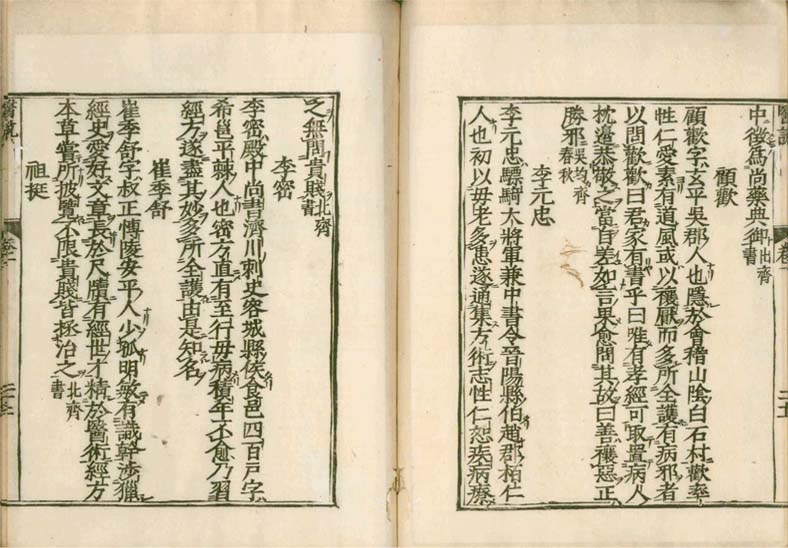 中徵爲尚藥典御出齊書
顧歡
顧歡字玄平吳郡人也隱於會稽山陰白石村歡率
性仁愛素有道風或以穰厭而多所全護有病邪者
以問歡歡曰君家有書乎曰唯有孝經可取置病人
枕邊恭敬之當自差如言果愈問其故曰善穰惡正
勝邪吳均齊春秋
李元忠
李元忠驃騎大將軍兼中書令晉陽縣伯趙郡柏仁
人也初以母老多患遂通集方術志性仁恕疾病療
之無問貴賤北齊書
李密
李密殿中尚書濟川刺史容城縣侯食邑四百戸字
希邕平棘人也密方直有至行母病積年不愈乃習
經方遂盡其妙多所全護由是知名
崔季舒
崔季舒字叔正慱陵安平人少孤明敏有識幹涉獵
經史愛好文章長於尺牘有經世才精於醫術經方
本草嘗所披覽不限貴賤皆拯治之北齊書
祖挺